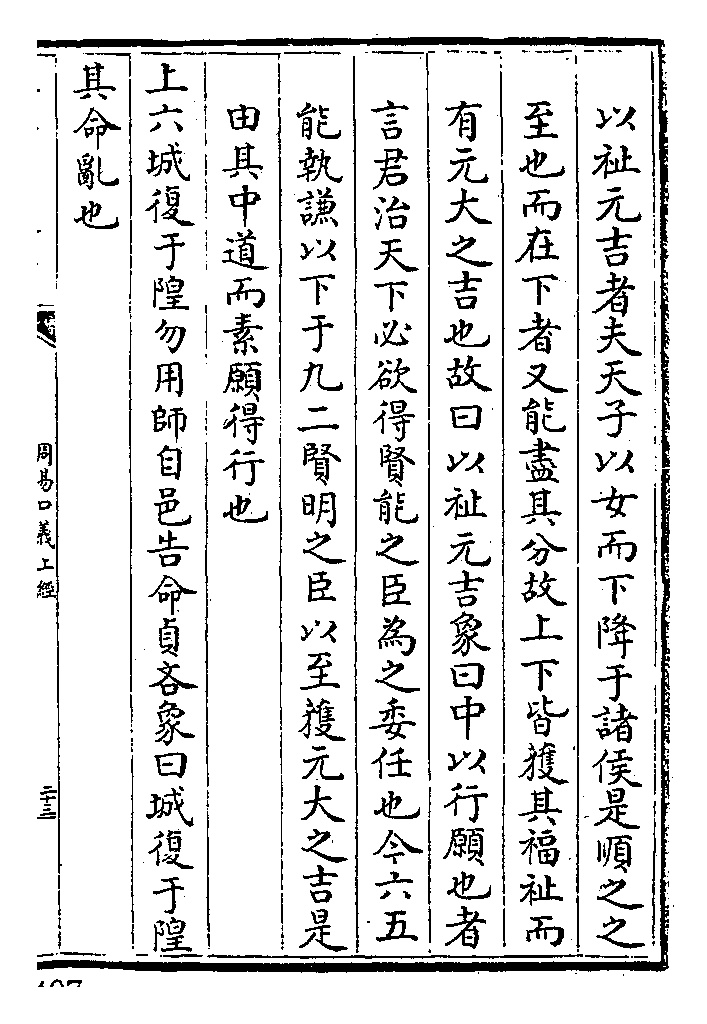 以祉元吉者夫天子以女而下降于諸侯是順之之
至也而在下者又能盡其分故上下皆獲其福祉而
有元大之吉也故曰以祉元吉象曰中以行願也者
言君治天下必欲得賢能之臣為之委任也今六五
能執謙以下于九二賢明之臣以至獲元大之吉是
由其中道而素願得行也
上六城復于隍勿用師自邑告命貞吝象曰城復于隍
其命亂也
周易口義上經
二十三